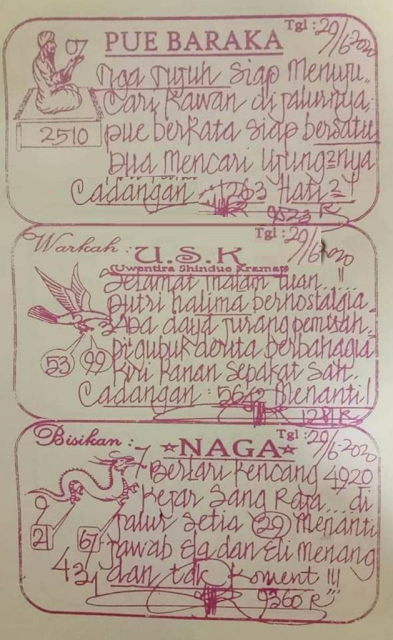 Tgl : 29/6-2020
PUE BARAKA
Tiga Tujuh siap Menuju..
Cari Kawan di jalurnya
2510
pue berkata siap bersatu
Dua Mencari Ujung2nya
Cadangan 1263 Hati2!
9523 R
Tgl : 29/6-2020
Warkah : U.S.K
(Uwentira Shindue Kramat)
Selamat malam tuan...!!
putri halima bernostalgia.
3 Apa daya jurang pemisah.
53 99 Digubuk derita berbahagia
Kiri Kanan Sepakat Satu.
Cadangan : 5642 Menanti!
R
Tgl : 29/6-2020
Bisikan : NAGA
7 Berlari Kencang 4920
Kejar Sang Raja... di
9 jalur setia 29 Menanti
21 67 jawab Ela dan Eli Menang
dan tak Koment !!!
9260 R